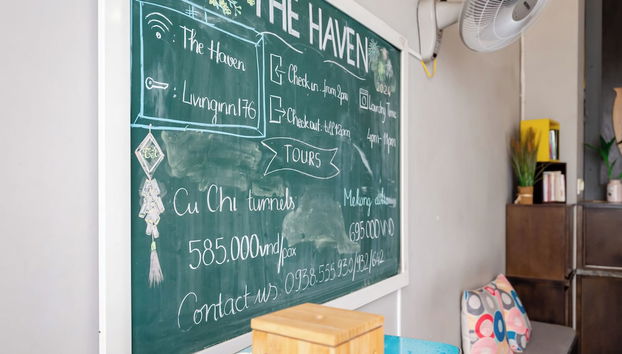 THE HAVEN
2024
: The Haven
: Livinginn176
Check in : from 2pm
Check out : till 12pm
Laundry Time
4pm - 11pm
TOURS
Tết
Cu Chi tunnels
585.000vnd/pax
Mekong
695000 VND
Contact us : 0938.555.930/932/642